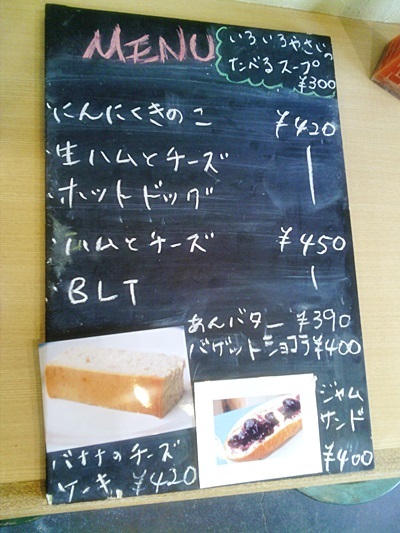 MENU
いろいろやさいの
たべるスープ
¥300
にんにくきのこ ¥420
生ハムとチーズ
ホットドッグ
ハムとチーズ ¥450
BLT
あんバター ¥390
バゲットショコラ ¥400
ジャム
サンド
¥400
バナナのチーズ
ケーキ ¥420